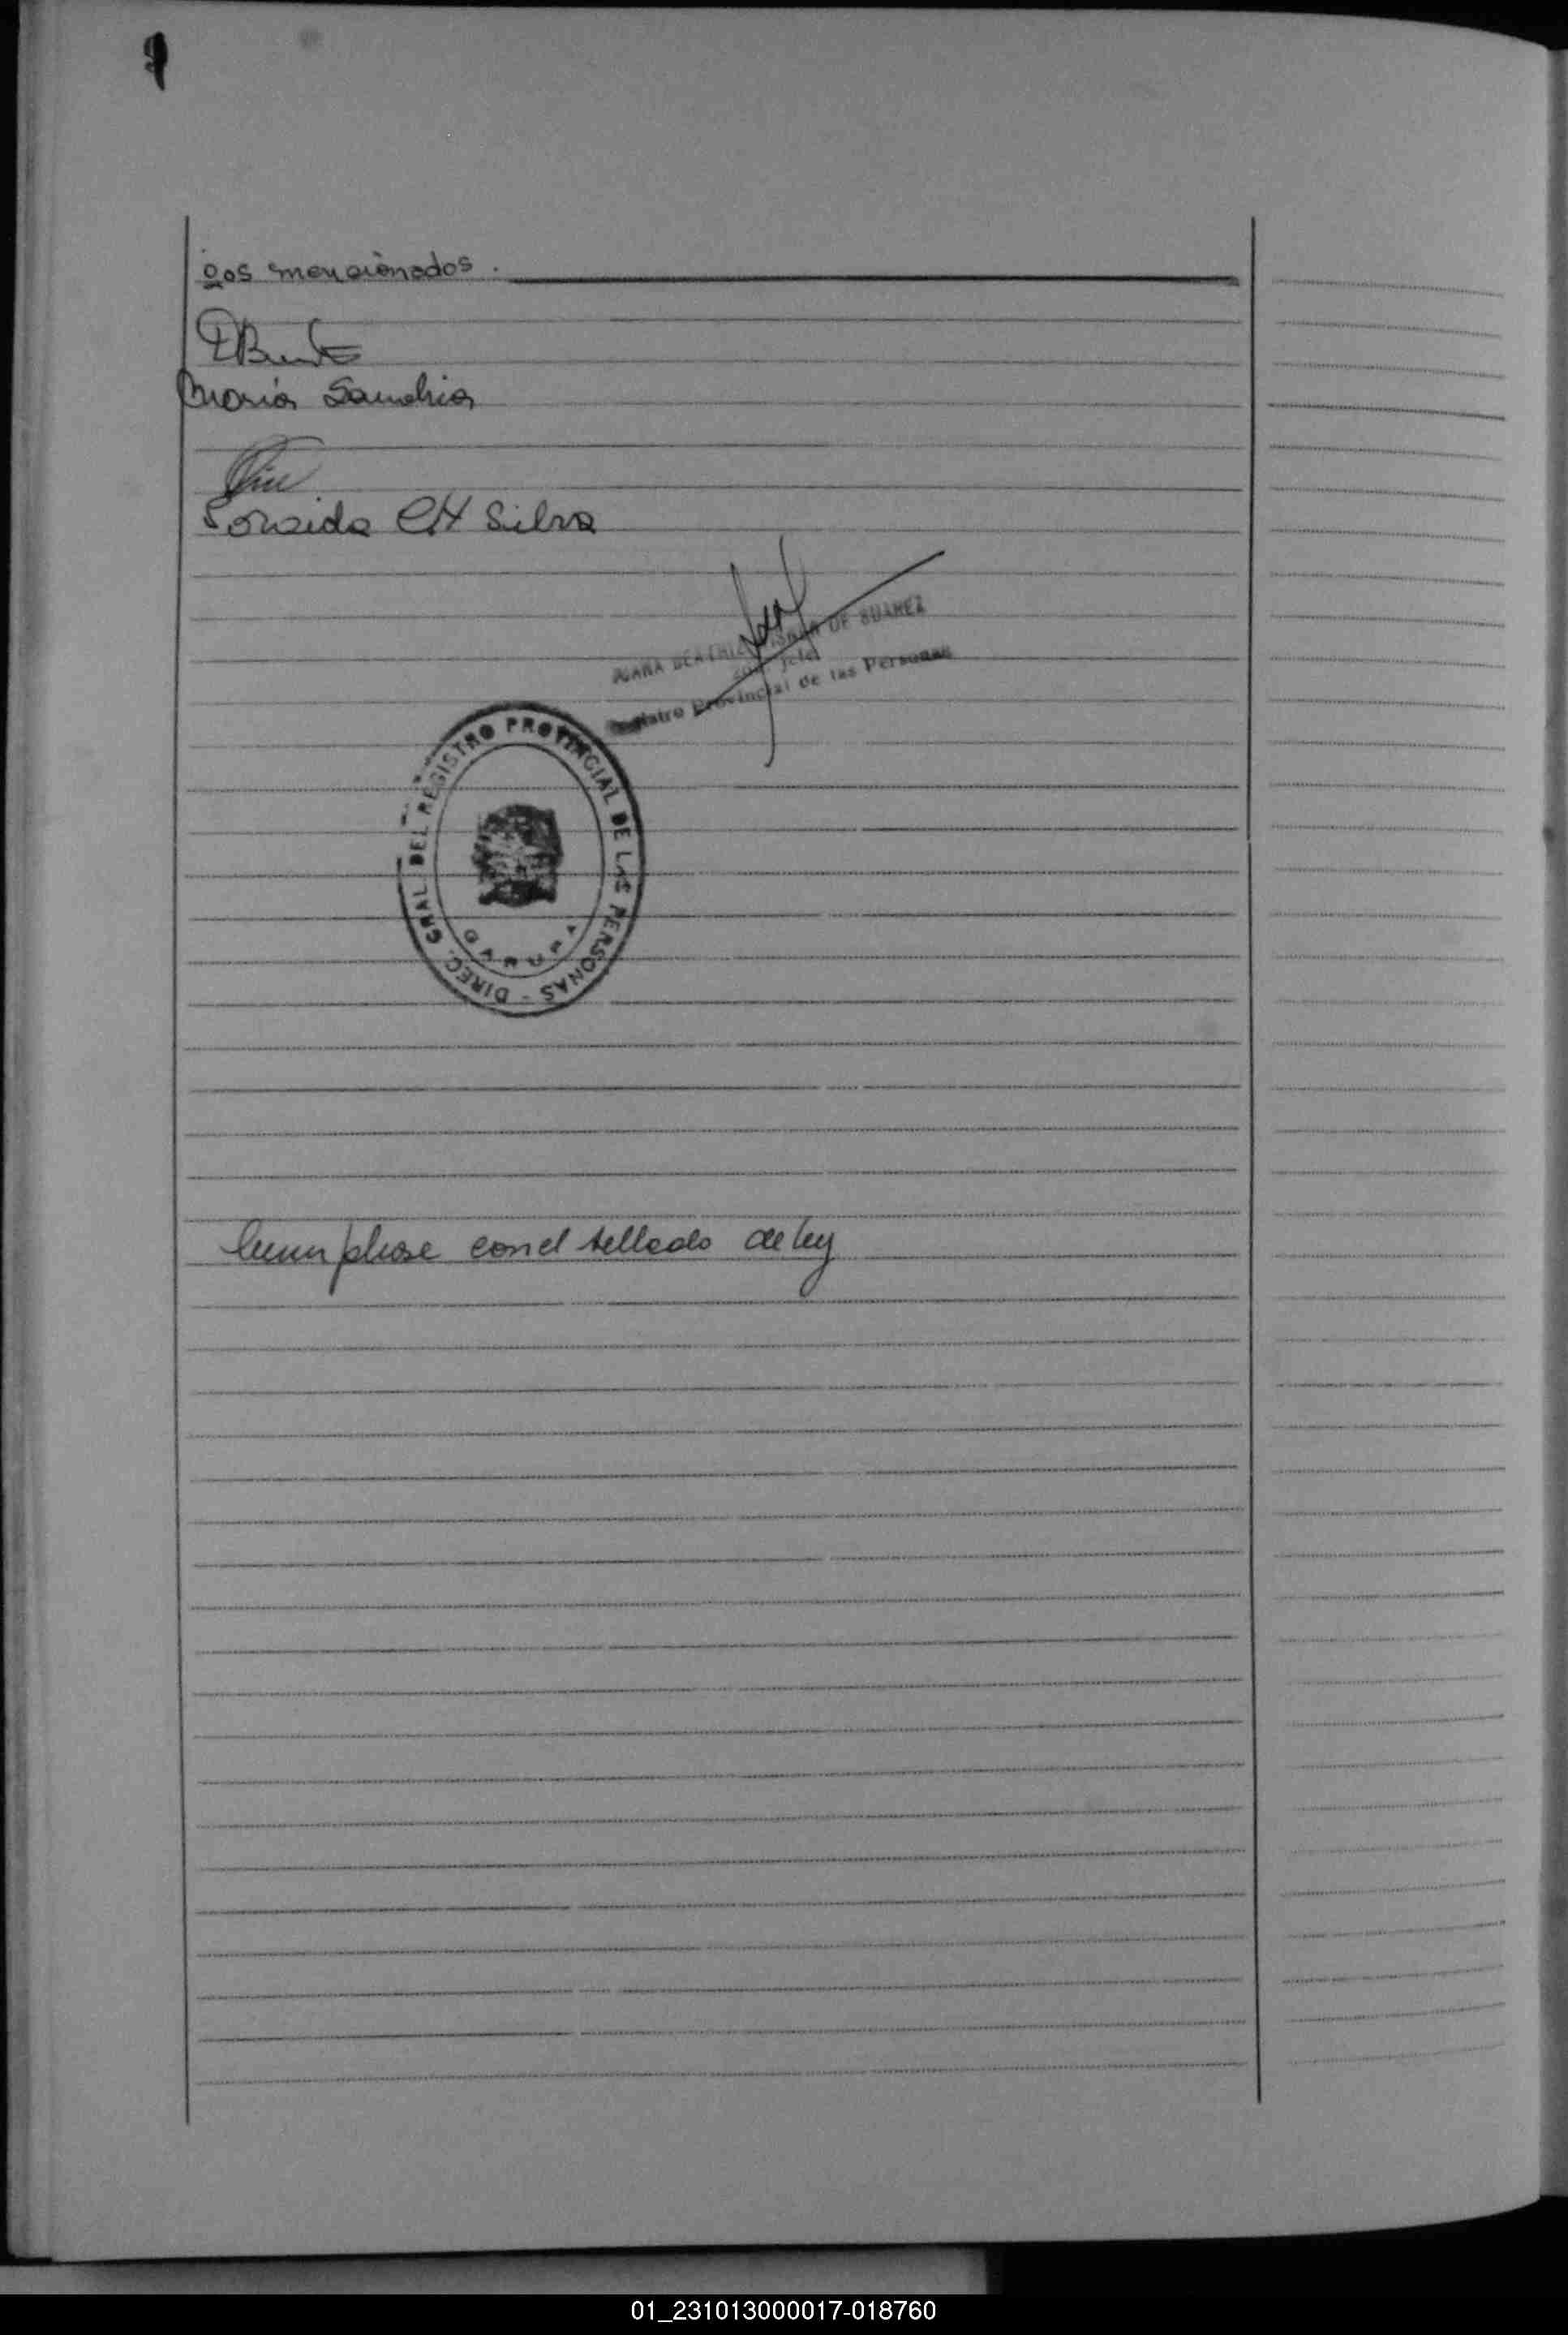 gos mencionados.
Maria Sandria
Soraida CH Silva
JUANA BEATRIZ DE SUAREZ
Registro Provincial de las Personas
DIREC. GRAL. DEL REGISTRO PROVINCIAL DE LAS PERSONAS -
GARUPA
Cumplase con el sellado de ley
01_231013000017-018760